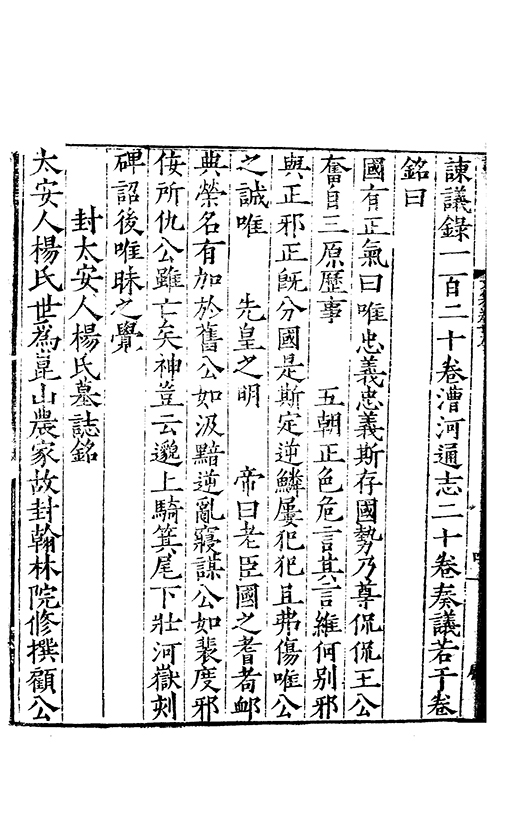 諫議錄一百二十卷漕河通志二十卷奏議若干卷
銘曰
國有正氣曰唯忠義忠義斯存國勢乃尊侃侃王公
奮自三原歷事　五朝正色危言其言維何別邪
與正邪正旣分國是斯定逆鱗屢犯犯且弗傷唯公
之誠唯　先皇之明　帝曰老臣國之耆耇卹
典榮名有加於舊公如汲黯逆亂寢謀公如裴度邪
佞所仇公雖亡矣神豈云邈上騎箕尾下壯河嶽刻
碑詔後唯昧之覺
封太安人楊氏墓誌銘
太安人楊氏世爲崑山農家故封翰林院修撰顧公